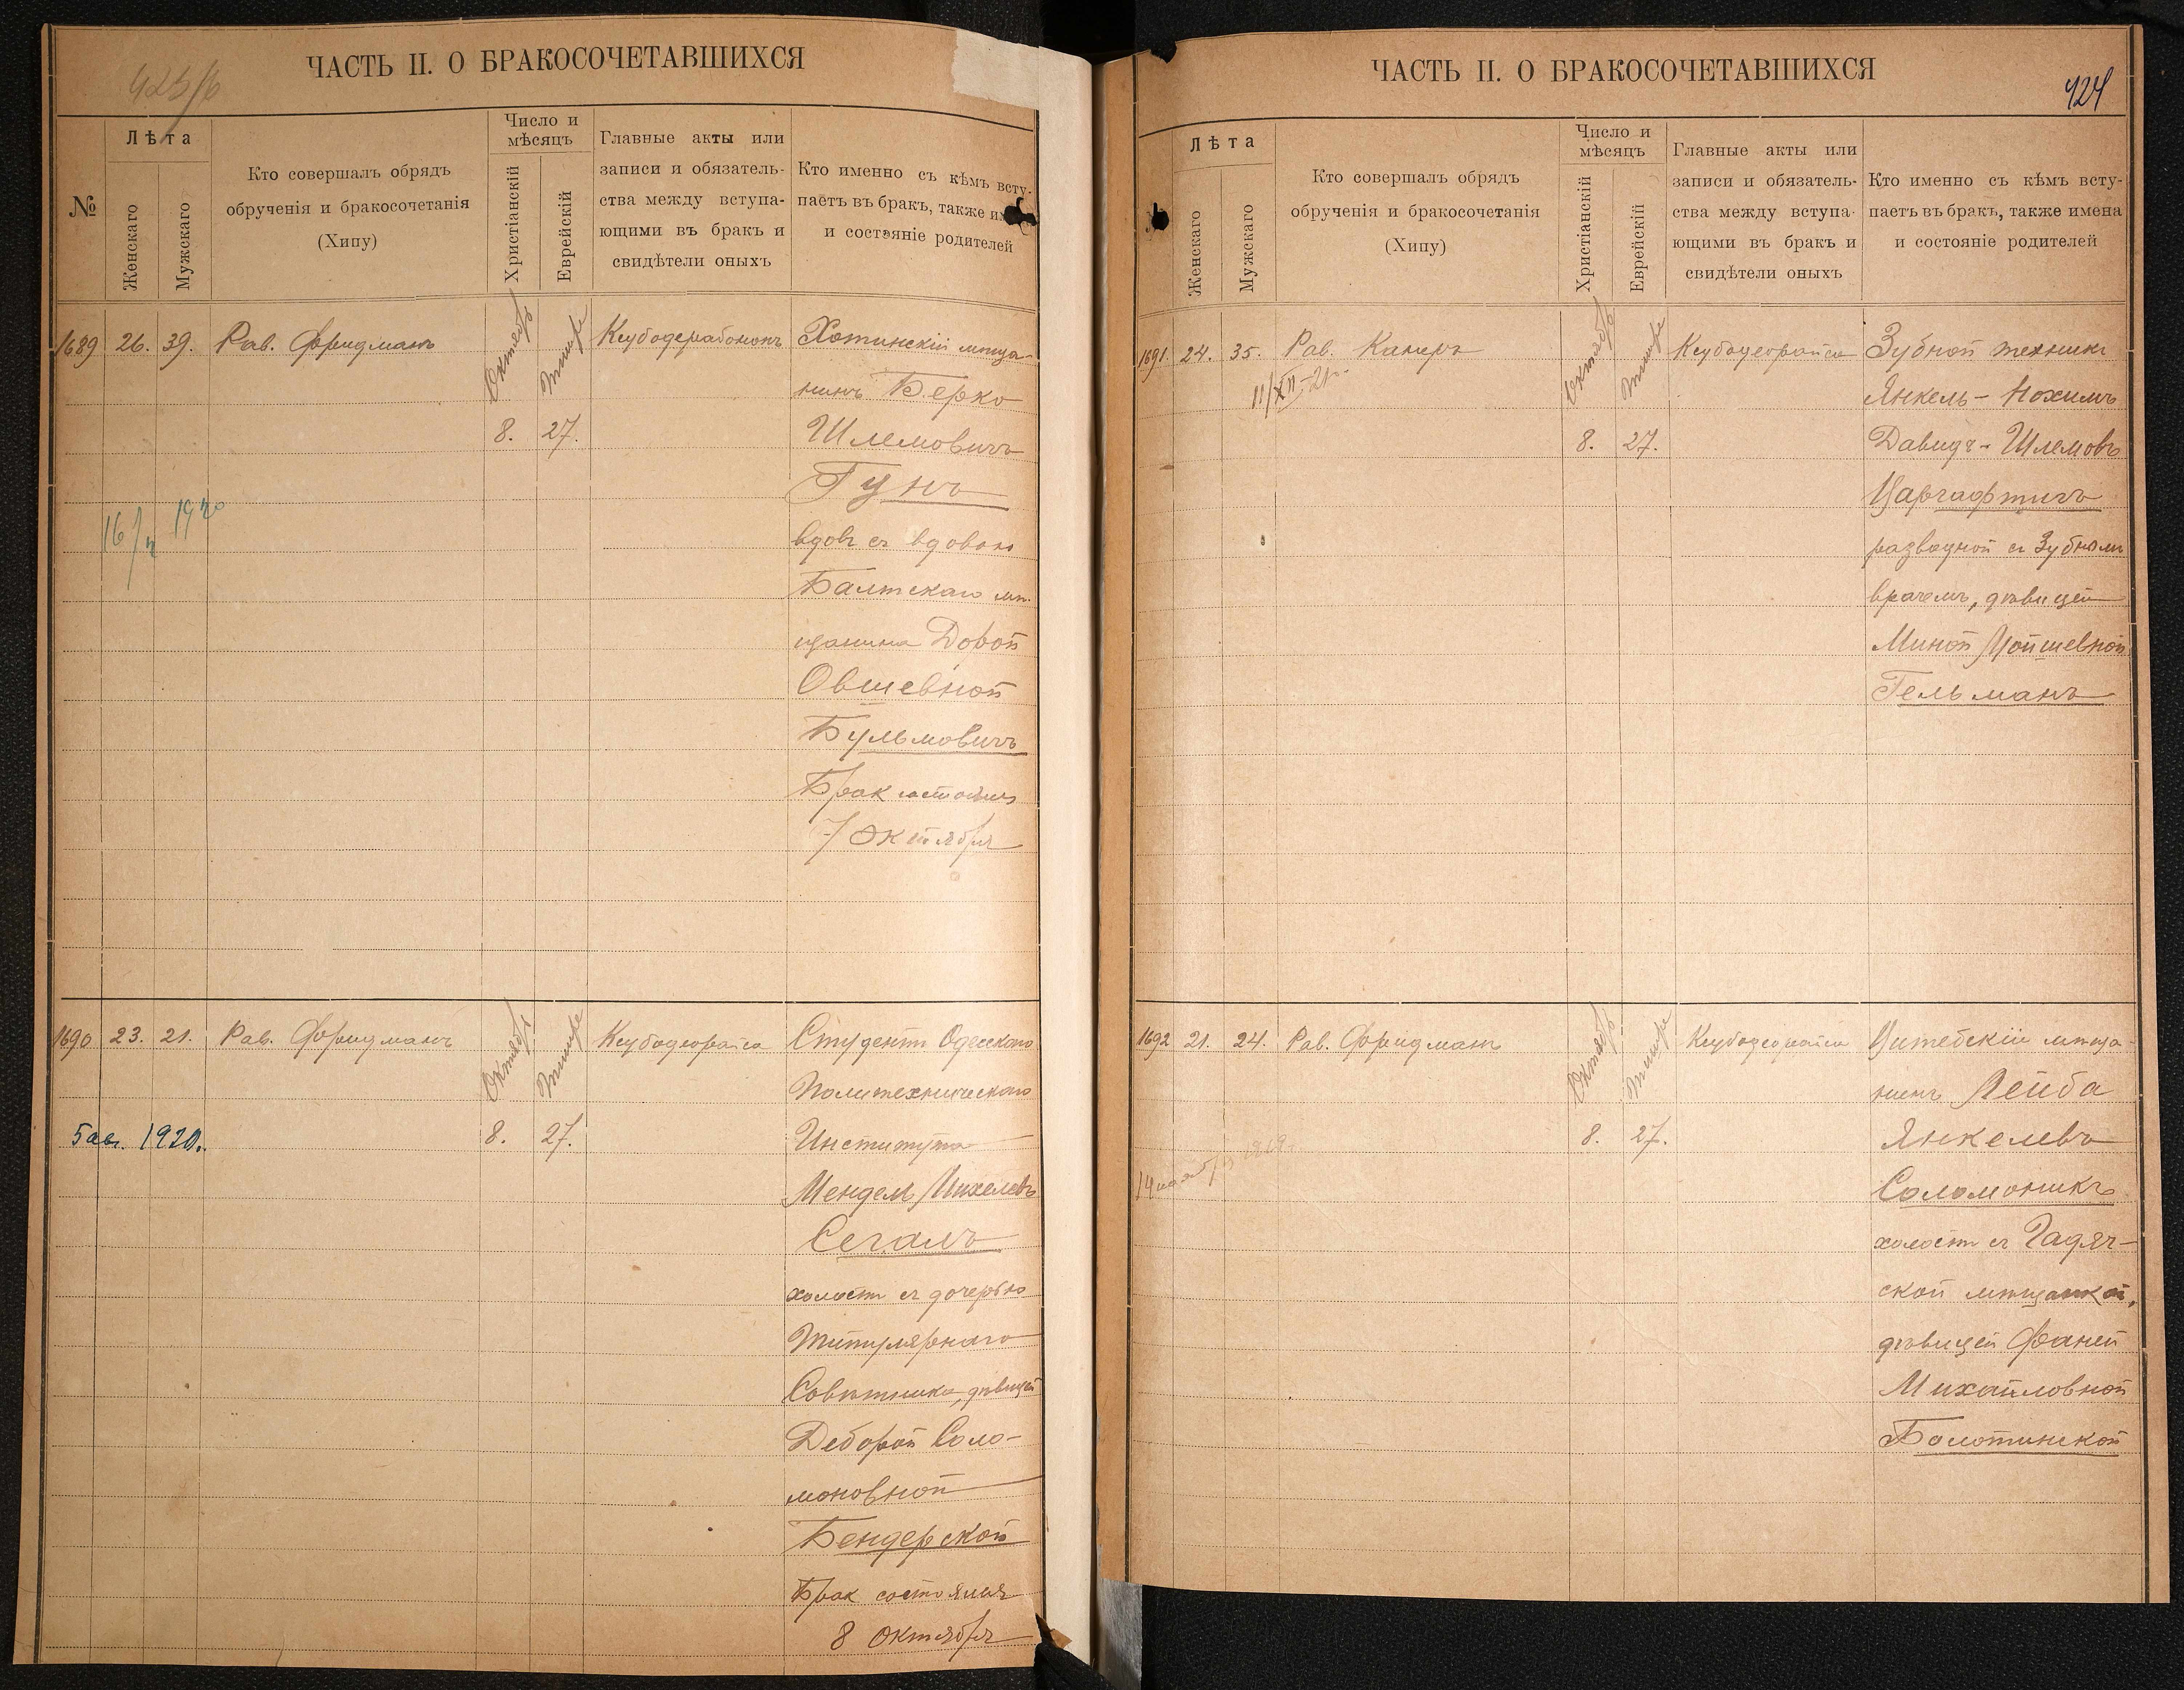 ЧАСТЬ II. О БРАКОСОЧЕТАВШИХСЯ
№
Лѣта
Женскаго
Мужскаго
Кто совершалъ обрядъ
обрученія и бракосочетанія
(Хипу)
Число и
мѣсяцъ
Христіанскій
Еврейскій
Главные акты или
записи и обязатель-
ства между вступа-
ющими въ бракъ и
свидѣтели оныхъ
Кто именно съ кѣмъ всту-
паетъ въ бракъ, также
и состояніе родителей
1689 26. 39. Рав. Фридманъ
Октябрь Тишре
8. 27.
Хотинскій мѣща-
нинъ Берко
Шлемовичъ
Гунъ
вдовъ съ вдовою
Балтскаго мѣ-
щанина Довой
Овшевной
Бульмовичъ
Брак состоялся
7 Октября
1690 23. 21. Рав. Фридманъ
Октябрь Тишре
8. 27.
5 авг. 1920.
Кеубодеорайса
Студентъ Одесскаго
Политехническаго
Института
Мендель Михелевъ
Сегалъ
холостъ съ дочерью
Титулярнаго
Совѣтника, дѣвицей
Деборой Соло-
моновной
Бендерской
Брак состоялся
8 Октября
ЧАСТЬ II. О БРАКОСОЧЕТАВШИХСЯ
424
Лѣта
Женскаго
Мужскаго
Кто совершалъ обрядъ
обрученія и бракосочетанія
(Хипу)
Число и
мѣсяцъ
Христіанскій
Еврейскій
Главные акты или
записи и обязатель-
ства между вступа-
ющими въ бракъ и
свидѣтели оныхъ
Кто именно съ кѣмъ всту-
паетъ въ бракъ, также имена
и состояніе родителей
1691. 24. 35. Рав. Камеръ
11/XII-21г.
Октябрь Тишре
8. 27.
Кеубодеорайса
Зубной техникъ
Янкель-Нохимъ
Давидъ-Шлемовъ
разводной съ Зубнымъ
врачемъ, дѣвицей
Миной Мойшевной
Гельманъ
1692 21. 24. Рав. Фридманъ
Октябрь Тишре
8. 27.
Кеубодеорайса
Витебскій мѣща-
нинъ Лейба
Янкелевъ
Соломоникъ
холостъ съ Гадяч-
ской мѣщанкой,
дѣвицей Фаней
Михайловной
Болотинской